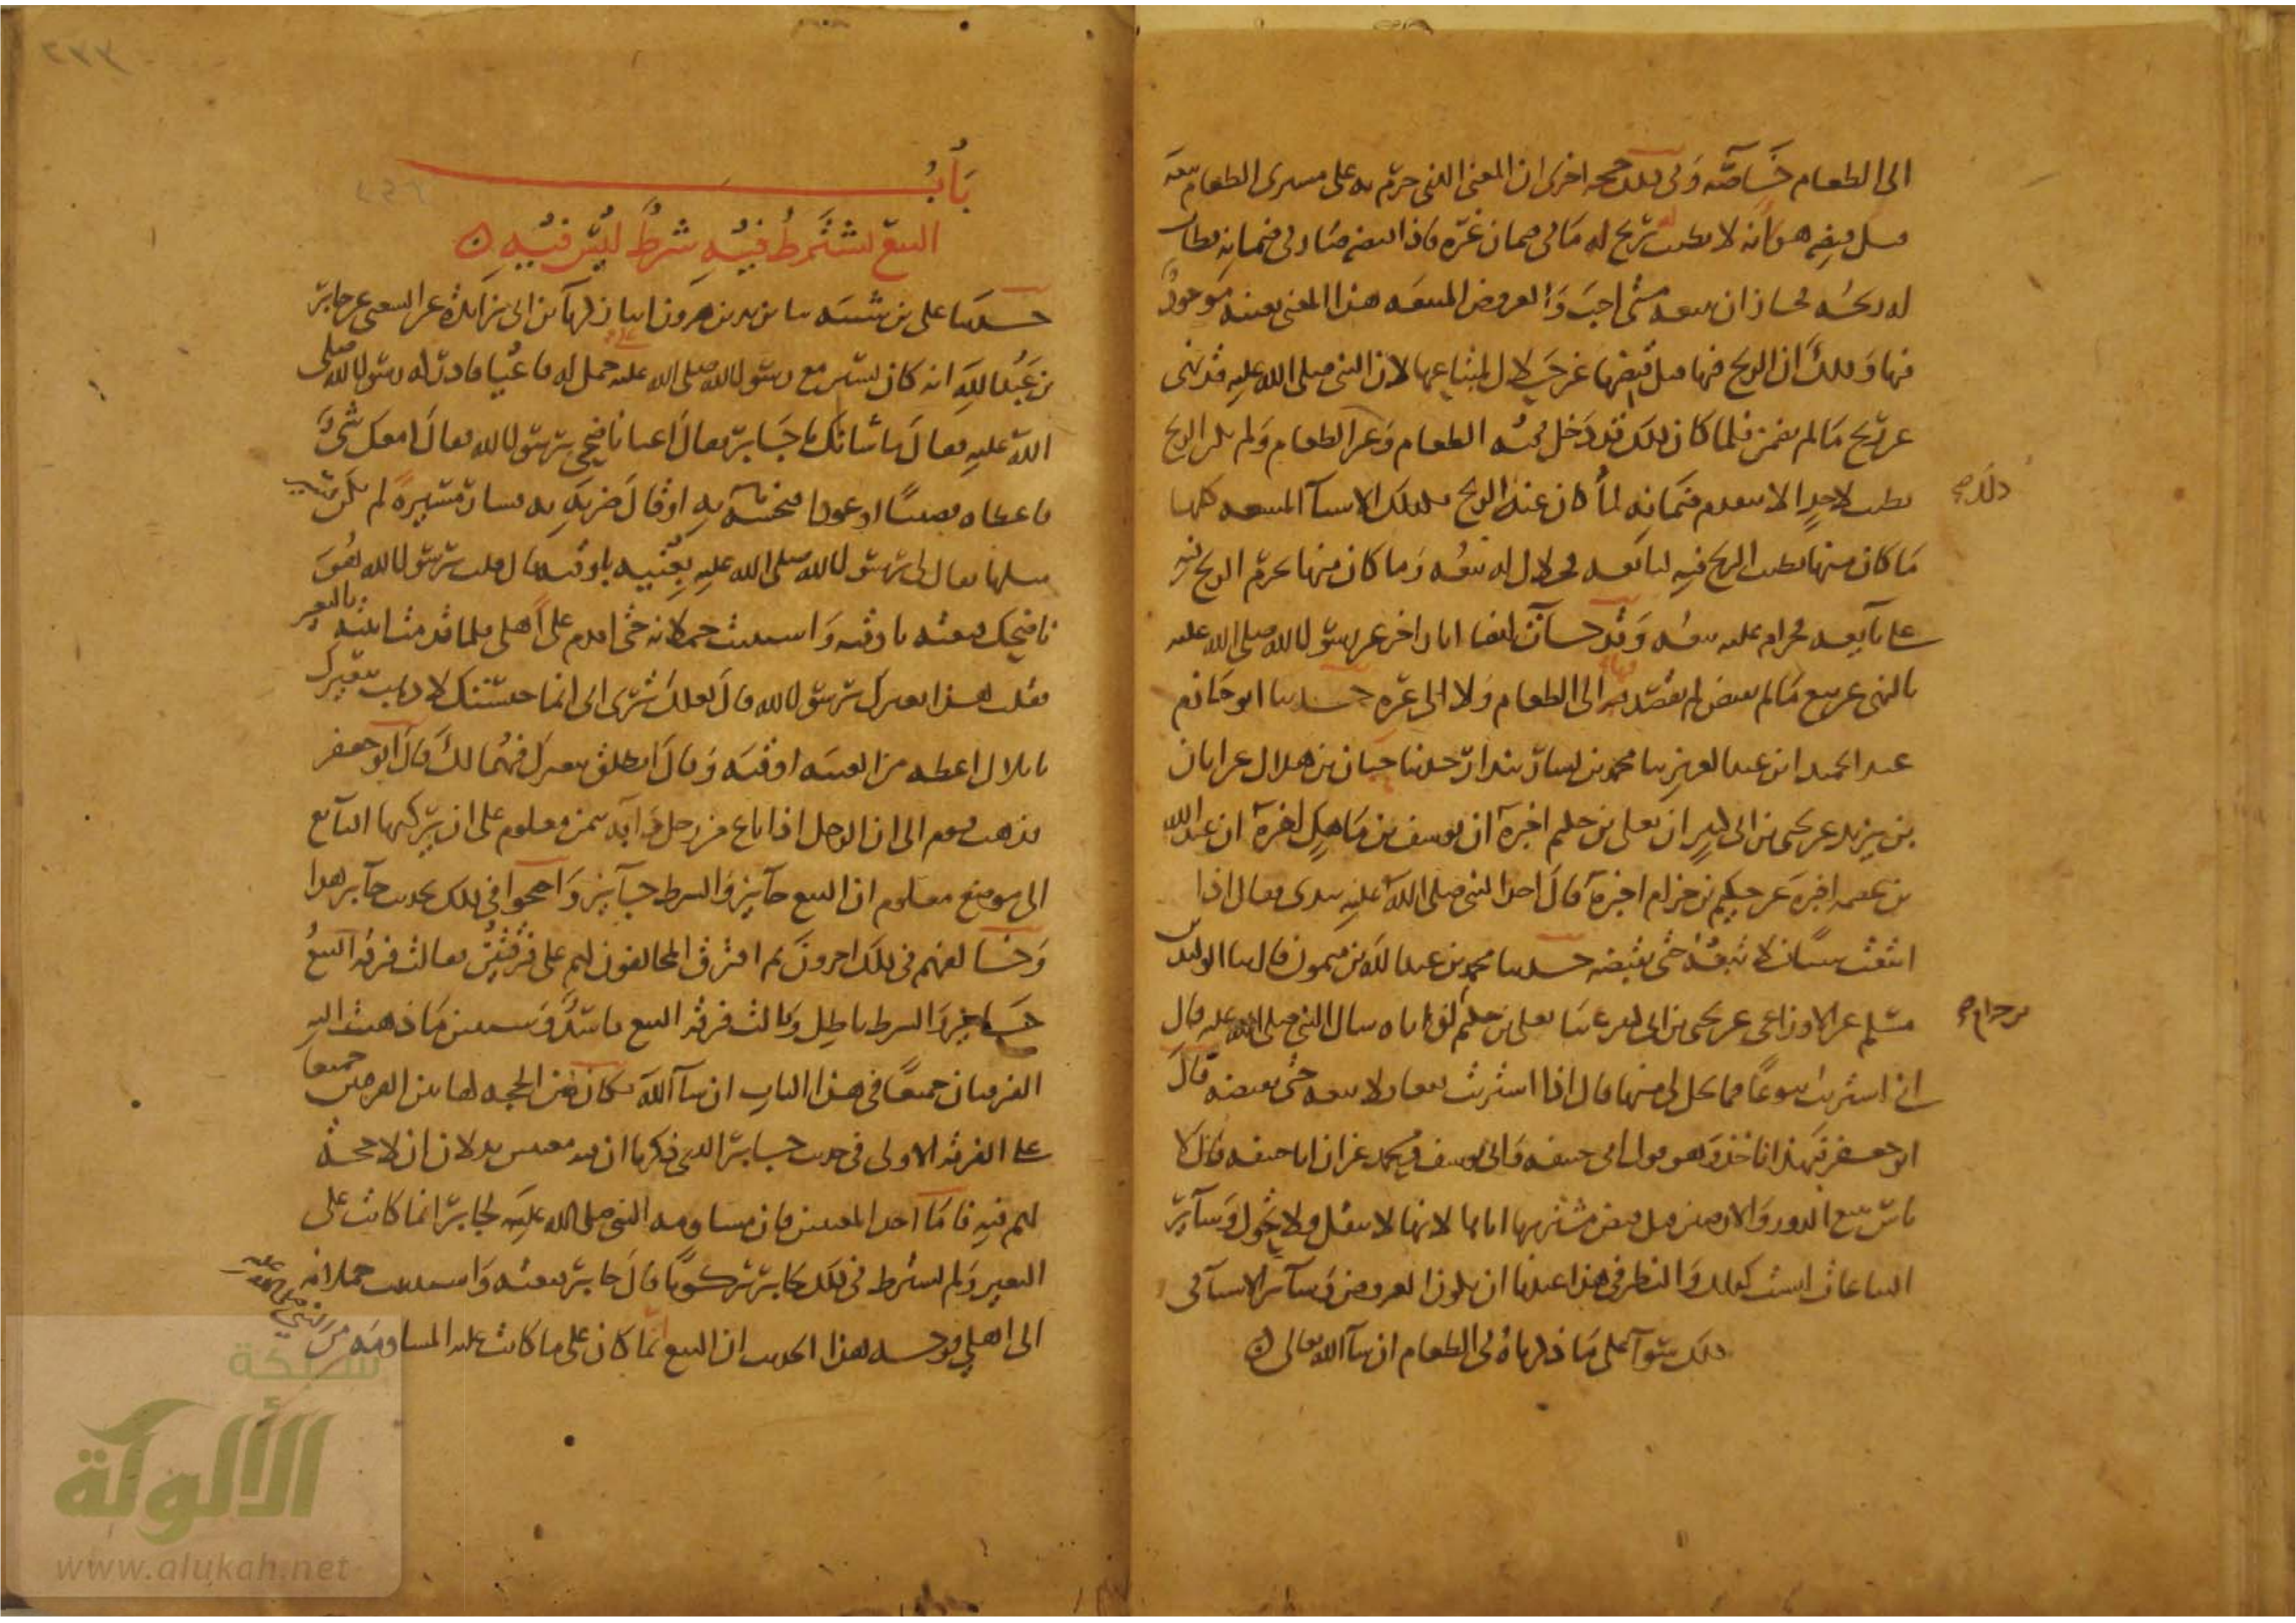 الى الطعام خاصة وفي ذلك حجة اخرى ان المعنى الذي حرم به على مشتري الطعام بيعه
قبل قبضه هو انه لا يطيب له ربح ما في ضمان غيره فاذا قبضه صار في ضمانه فطاب
له ربحه فجاز ان يبيعه متى احب والعروض المبيعة هذا المعنى بعينه موجود
فيها وذلك ان الربح فيها قبل قبضها غير حلال لمبتاعها لان النبي صلى الله عليه قد نهى
عن ربح ما لم يضمن فلما كان ذلك قد دخل فيه الطعام وغير الطعام ولم يكن الربح
يطيب لاحد الا بتقدم ضمانه لما كان عنه الربح فكذلك الاشيا المبيعة كلها
ذلك صح
ما كان منها يطيب الربح فيه لبائعه فحلال له بيعه وما كان منها يحرم الربح فيه
على بايعه فحرام عليه بيعه وقد جات ايضا اثار اخر عن رسول الله صلى الله عليه
بالنهي عن بيع ما لم يقبض لم يقصد فيها الى الطعام ولا الى غيره حدثنا ابو حازم
عبد الحميد ابن عبد العزيز ثنا محمد بن بشار بندار حدثنا حبان بن هلال عن ابان
بن يزيد عن يحيى بن ابي كثير ان يعلى بن حكيم اخبره ان يوسف بن ماهك اخبره ان عبد الله
بن عصمة اخبره عن حكيم بن حزام اخبره قال اخذ النبي صلى الله عليه بيدي فقال اذا
ابتعت شيا فلا تبعه حتى تقبضه حدثنا محمد بن عبد الله بن ميمون قال ثنا الوليد بن
مسلم عن الاوزاعي عن يحيى بن ابي كثير ثنا يعلى بن حكيم ان اباه سال النبي صلى الله عليه قال
بن حزام صح
اني اشتري بيوعا فما يحل لي منها قال اذا اشتريت بيعا فلا تبعه حتى تقبضه قال
ابو جعفر فبهذا ناخذ وهو قول ابي حنيفة وابي يوسف ومحمد غير ان ابا حنيفة قال لا
باس ببيع الدور والارضين قبل قبض مشتريها اياها لانها لا تنقل ولا تحول وساير
البياعات ليست كذلك والنظر في هذا عندنا ان يكون العروض وساير الاشيا في
ذلك سوا على ما ذكرناه في الطعام ان شا الله تعالى
٢٣٣
باب
البيع يشترط فيه شرط ليس فيه
حدثنا علي بن شيبة ثنا يزيد بن هرون انبا زكريا بن ابي زايدة عن الشعبي عن جابر
بن عبد الله انه كان يسير مع رسول الله صلى الله عليه على جمل له فاعيا فادركه رسول الله صلى
الله عليه فقال ما شانك يا جابر فقال اعيا ناضحي يرسول الله فقال امعك شيء
فاعطاه قضيبا او عودا فنخسه به او قال ضربه به فسار مسيرة لم يكن يسير
مثلها فقال لي رسول الله صلى الله عليه بعنيه باوقية قال قلت يرسول الله هو
ناضحك فبعته باوقية واستثنيت حملانه حتى اقدم على اهلي فلما قدمت اتيته بالبعير
فقلت هذا بعيرك يرسول الله قال لعلك ترى اني انما حبستك لاذهب ببعيرك
يا بلال اعطه من العيبة اوقية وقال انطلق ببعيرك فهما لك قال ابو جعفر
فذهب قوم الى ان الرجل اذا باع من رجل دابة بثمن معلوم على ان يركبها البايع
الى موضع معلوم ان البيع جايز والشرط جايز واحتجوا في ذلك بحديث جابر هذا
وخالفهم في ذلك اخرون ثم افترق المخالفون لهم على فرقتين فقالت فرقة البيع
جايز والشرط باطل وقالت فرقة البيع فاسد وسنبين ما ذهبت اليه
الفرقتان جميعا في هذا الباب ان شا الله فكان من الحجة لهاتين الفرقتين جميعا
على الفرقة الاولى في حديث جابر الذي ذكرنا ان فيه معنيين يدلان ان لا حجة
لهم فيه فاما احد المعنيين فان مساومة النبي صلى الله عليه لجابر انما كانت على
البعير ولم يشترط في ذلك لجابر ركوبا قال جابر فبعته واستثنيت حملانه
الى اهلي فوجه هذا الحديث ان البيع انما كان على ما كانت عليه المساومة من النبي صلى الله عليه
شبكة
الألوكة
www.alukah.net